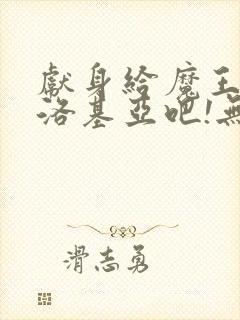 獻身給魔王
洛基亞吧!無
滑志勇